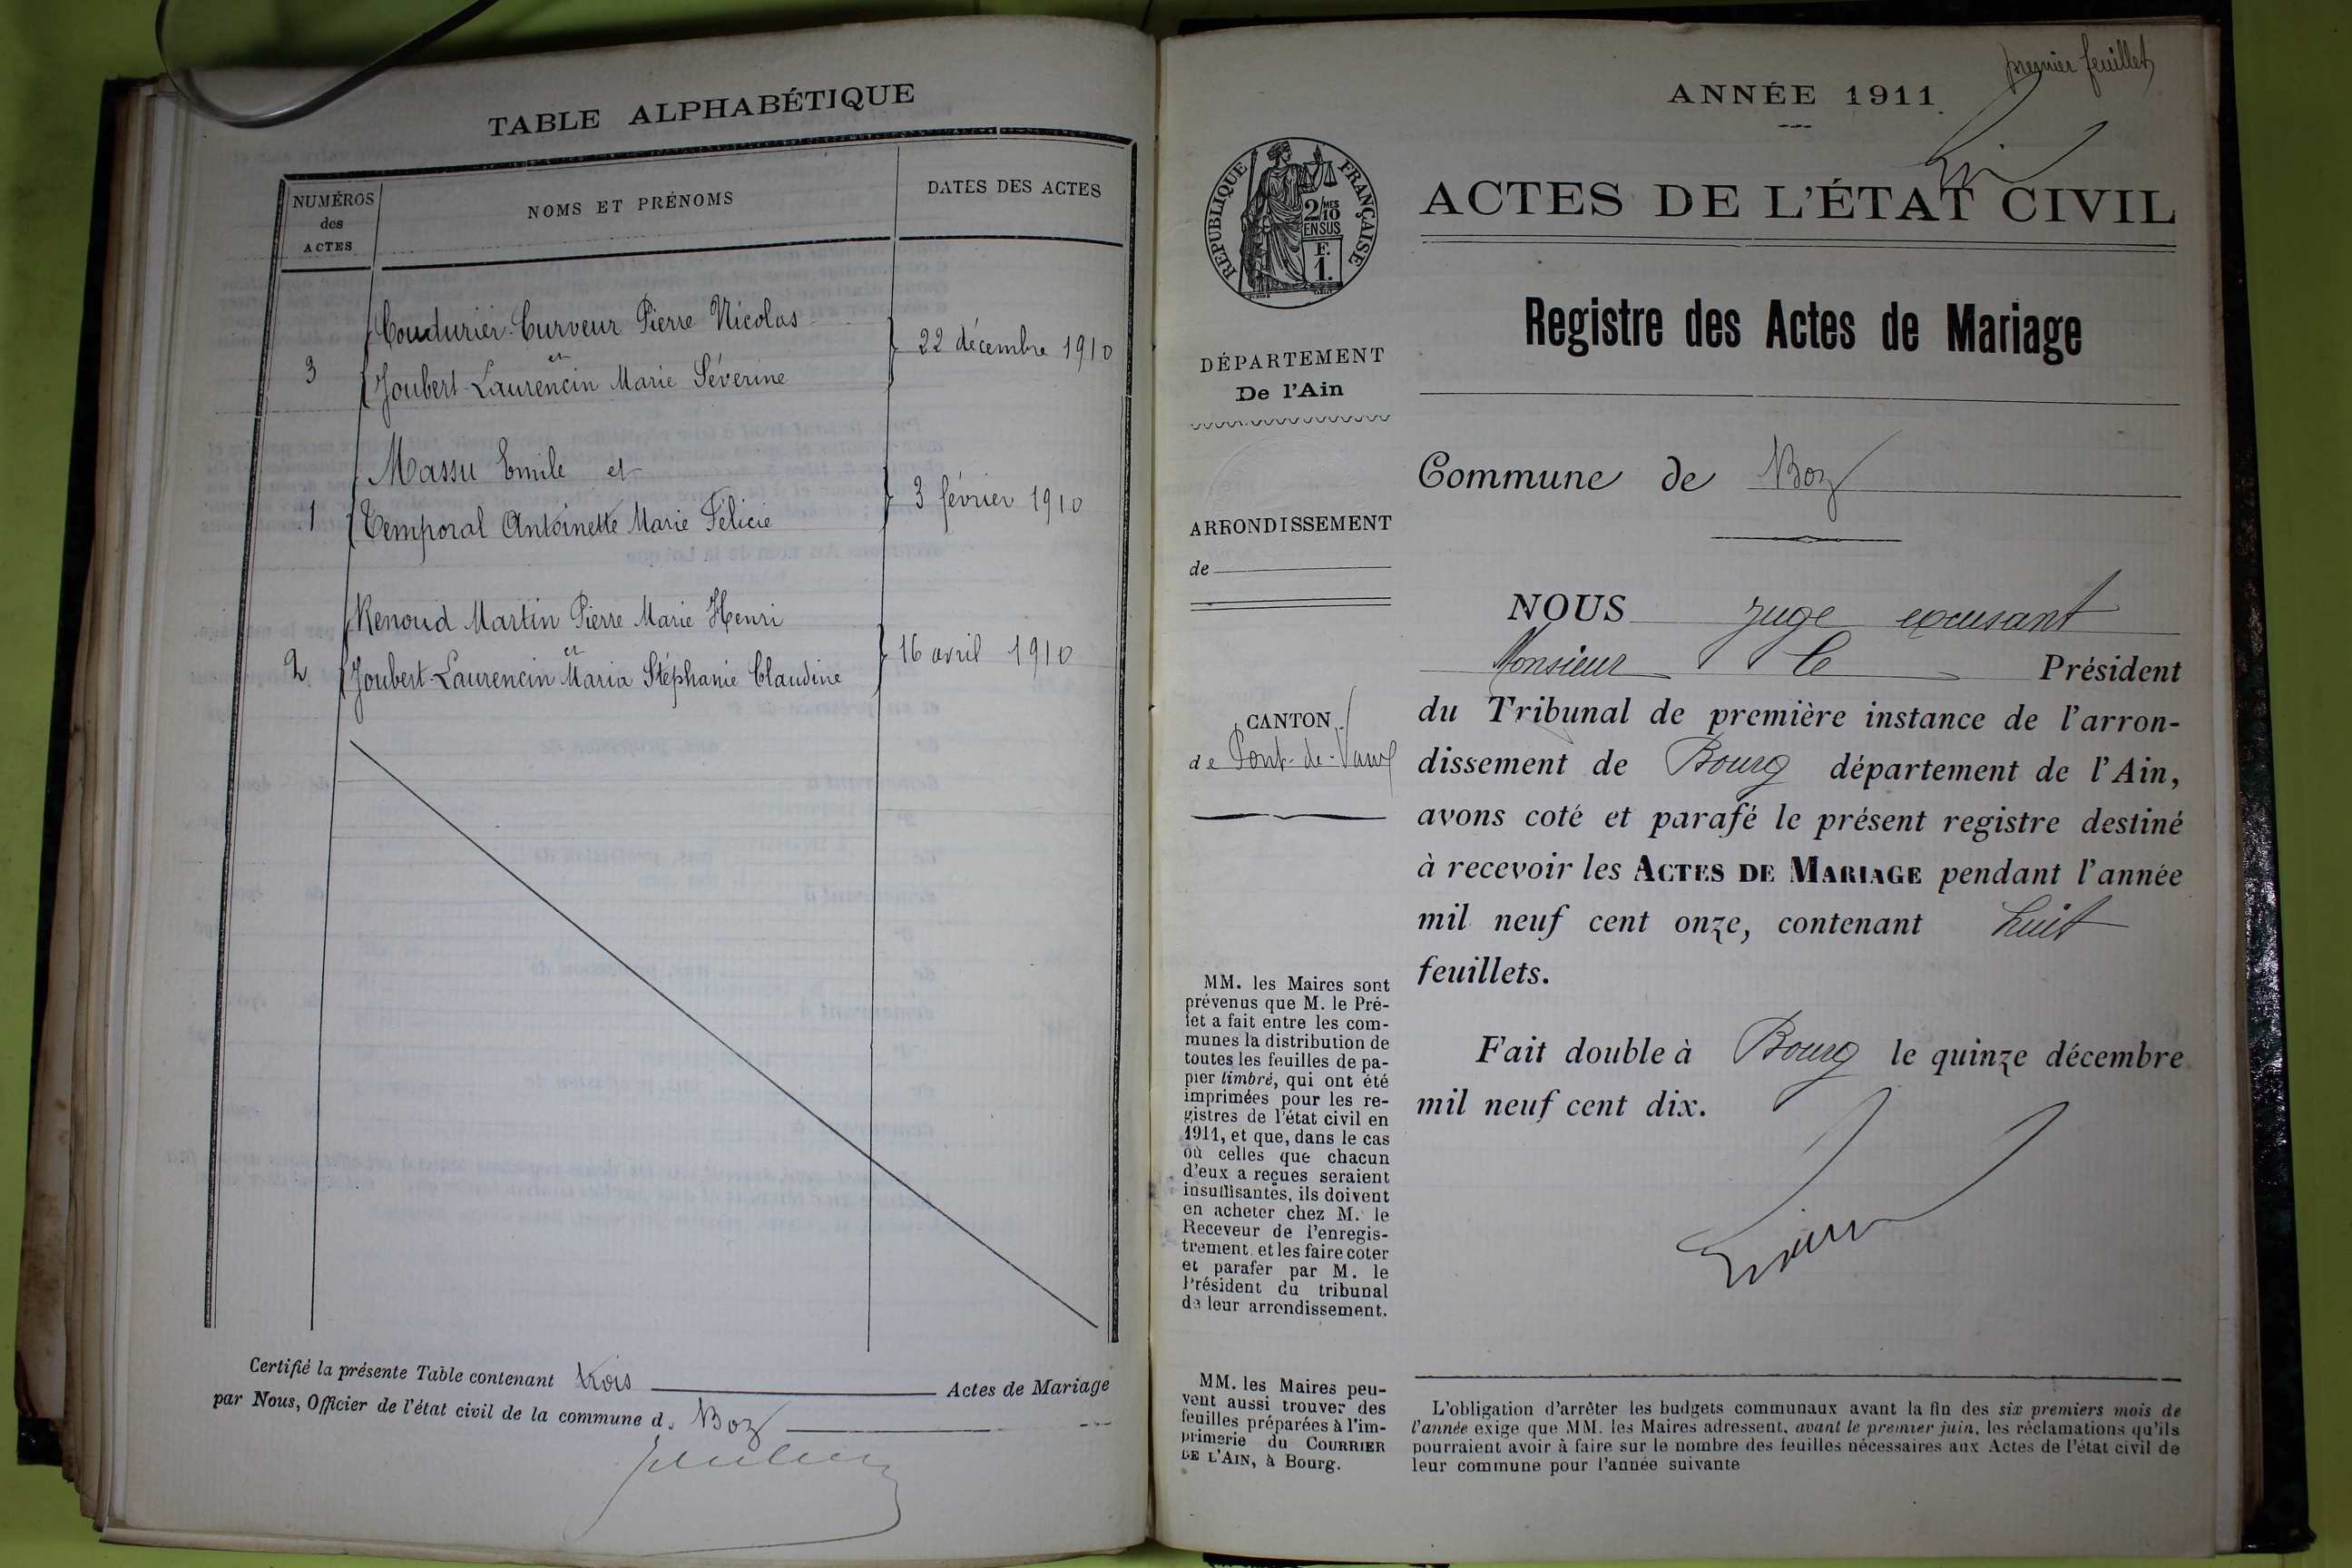 TABLE ALPHABÉTIQUE
NUMÉROS
des
ACTES
NOMS ET PRÉNOMS
DATES DES ACTES
3
Coudurier-Curveur Pierre Nicolas
et
Joubert-Laurencin Marie Séverine
22 décembre 1910
1
Massu Emile et
Temporal Antoinette Marie Félicie
3 février 1910
2
Renoud Martin Pierre Marie Henri
et
Joubert-Laurencin Maria Stéphanie Claudine
16 avril 1910
Certifié la présente Table contenant trois Actes de Mariage
par Nous, Officier de l'état civil de la commune d. Boz
premier feuillet
ANNÉE 1911
RÉPUBLIQUE FRANÇAISE
2/10 MES
EN SUS
F.
1.
DÉPARTEMENT
De l'Ain
ARRONDISSEMENT
de
CANTON
de Pont-de-Vaux
MM. les Maires sont
prévenus que M. le Pré-
fet a fait entre les com-
munes la distribution de
toutes les feuilles de pa-
pier timbré, qui ont été
imprimées pour les re-
gistres de l'état civil en
1911, et que, dans le cas
où celles que chacun
d'eux a reçues seraient
insuffisantes, ils doivent
en acheter chez M. le
Receveur de l'enregis-
trement et les faire coter
et parafer par M. le
Président du tribunal
de leur arrondissement.
MM. les Maires peu-
vent aussi trouver des
feuilles préparées à l'im-
primerie du COURRIER
DE L'AIN, à Bourg.
ACTES DE L'ÉTAT CIVIL
Registre des Actes de Mariage
Commune de Boz
NOUS juge excusant
Monsieur le Président
du Tribunal de première instance de l'arron-
dissement de Bourg département de l'Ain,
avons coté et parafé le présent registre destiné
à recevoir les ACTES DE MARIAGE pendant l'année
mil neuf cent onze, contenant huit
feuillets.
Fait double à Bourg le quinze décembre
mil neuf cent dix.
L'obligation d'arrêter les budgets communaux avant la fin des six premiers mois de
l'année exige que MM. les Maires adressent, avant le premier juin, les réclamations qu'ils
pourraient avoir à faire sur le nombre des feuilles nécessaires aux Actes de l'état civil de
leur commune pour l'année suivante